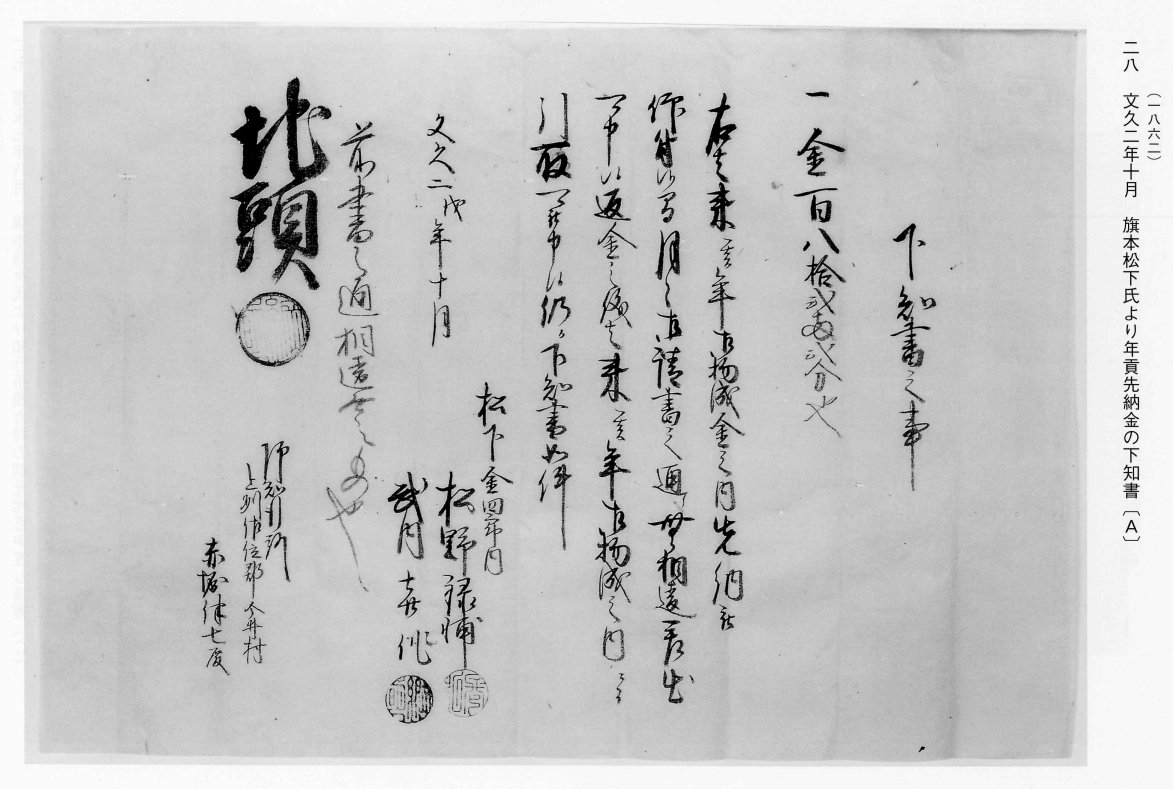 (一八六二)
二八 文久二年十月 旗本松下氏より年貢先納金の下知書〔A〕
下知書之事
一金百八拾弐両弐分也
右者来亥年御物成金之内先納被
仰付候間月々御請書之通無相違差出
可申候返金之儀者来亥年御物成之内ニ而
引取可被申候仍而下知書如件
松下金四郎内
松野録輔
武内喜作
文久二戌年十月
前書之通相違無之もの也
地頭
御知行所
上州佐位郡今井村
赤堀伴七殿